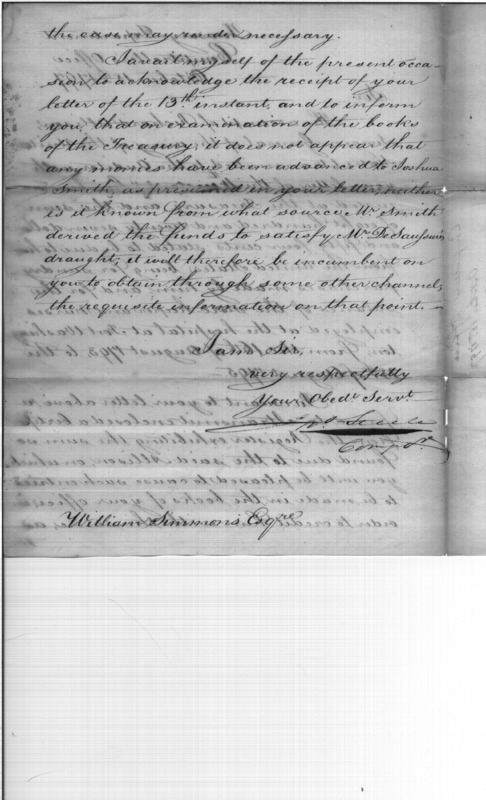 the case may render necessary.
I avail myself of the present occa-
sion to acknowledge the receipt of your
letter of the 13th instant, and to inform
you, that on examination of the books
of the Treasury, it does not appear that
any monies have been advanced to Joshua
Smith, as presumed in your letter, neither
is it known from what source Mr. Smith
derived the funds to satisfy Mr. De Saussure's
draught; it will therefore be incumbent on
you to obtain through some other channel,
the requisite information on that point.—
I am Sir,
very respectfully
Your Obedt. Servt.
Jno. Steele
Compr.
William Simmons Esqre.